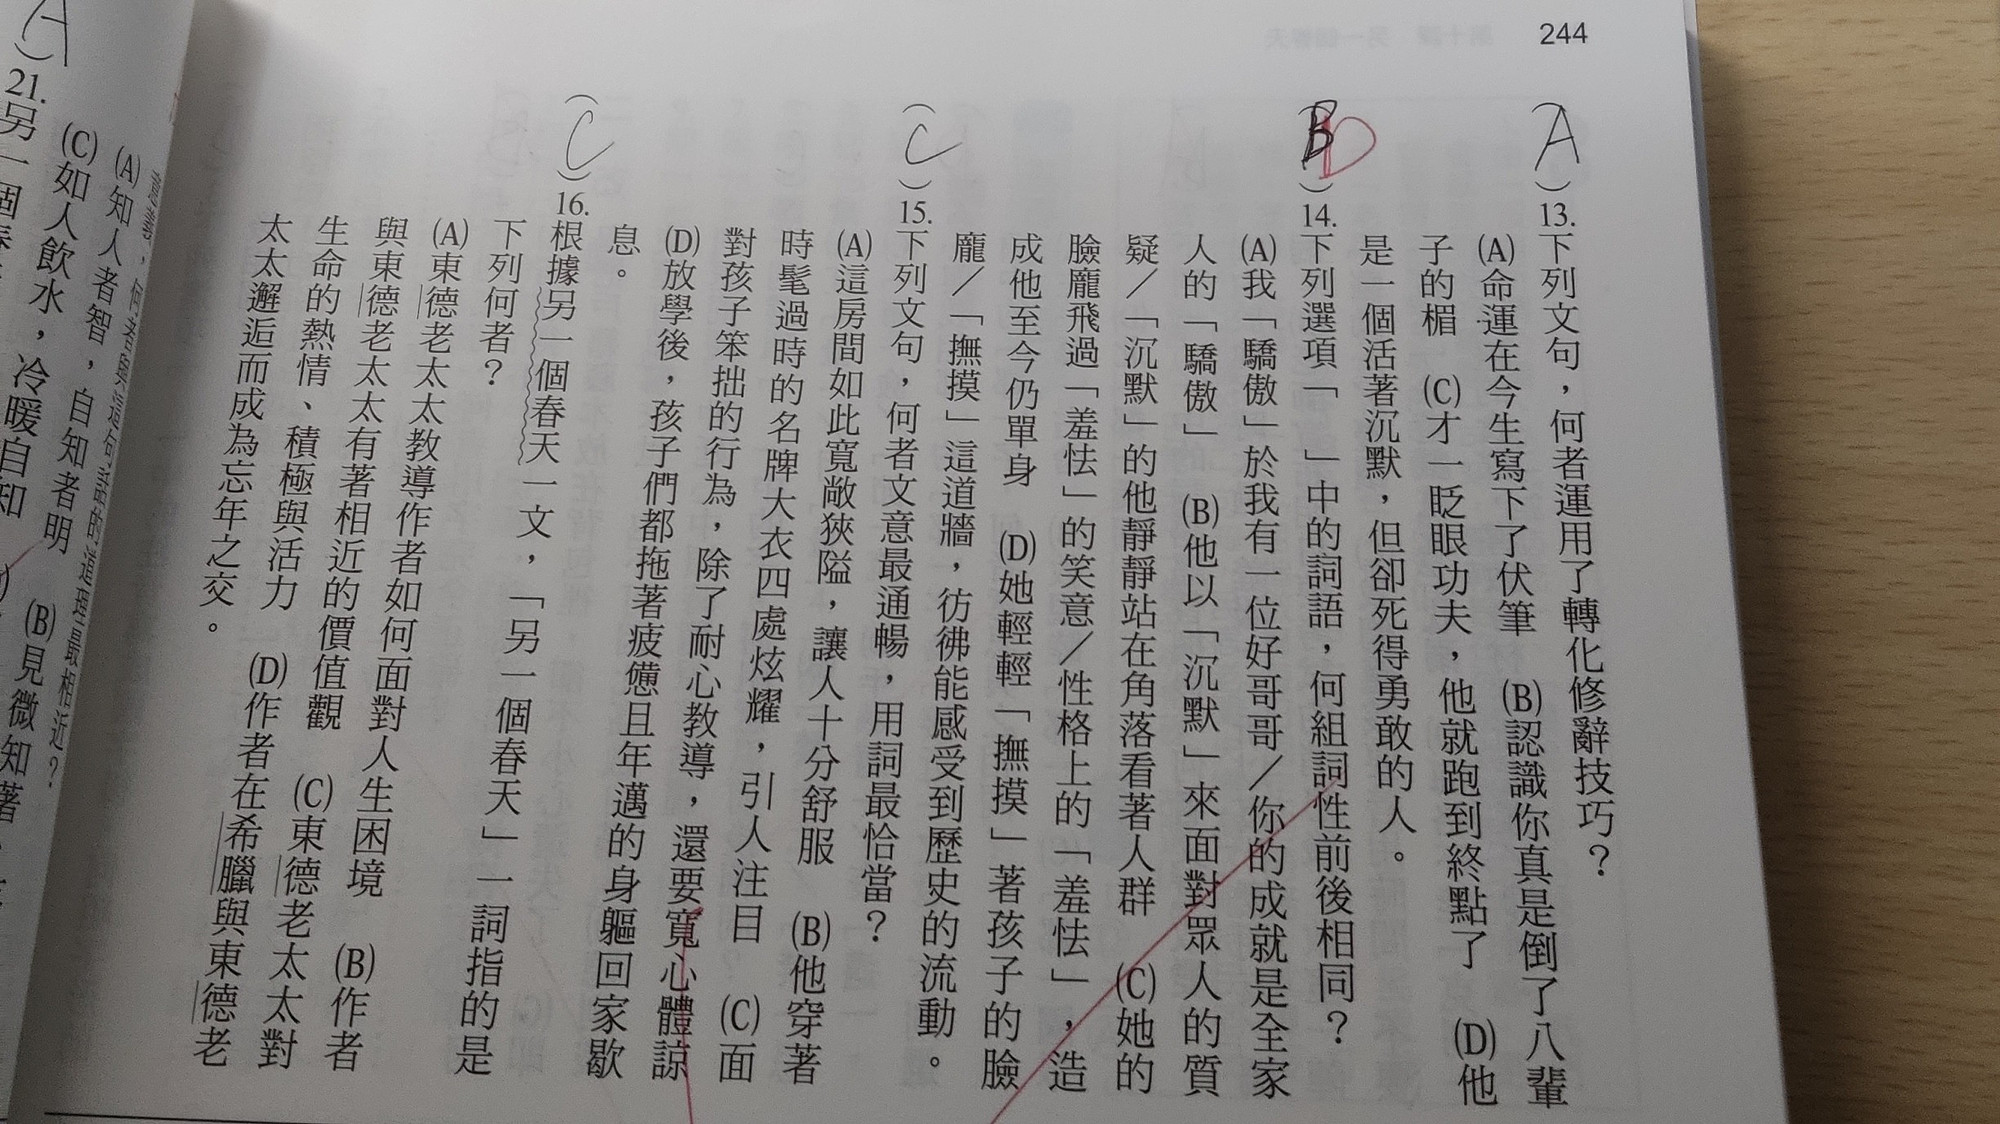 244
(A)13.下列文句，何者運用了轉化修辭技巧？
(A)命運在今生寫下了伏筆　(B)認識你真是倒了八輩
子的楣　(C)才一眨眼功夫，他就跑到終點了　(D)他
是一個活著沉默，但卻死得勇敢的人。
(B D)14.下列選項「　」中的詞語，何組詞性前後相同？
(A)我「驕傲」於我有一位好哥哥／你的成就是全家
人的「驕傲」　(B)他以「沉默」來面對眾人的質
疑／「沉默」的他靜靜站在角落看著人群　(C)她的
臉龐飛過「羞怯」的笑意／性格上的「羞怯」，造
成他至今仍單身　(D)她輕輕「撫摸」著孩子的臉
龐／「撫摸」這道牆，彷彿能感受到歷史的流動。
(C)15.下列文句，何者文意最通暢，用詞最恰當？
(A)這房間如此寬敞狹隘，讓人十分舒服　(B)他穿著
時髦過時的名牌大衣四處炫耀，引人注目　(C)面
對孩子笨拙的行為，除了耐心教導，還要寬心體諒
(D)放學後，孩子們都拖著疲憊且年邁的身軀回家歇
息。
(C)16.根據另一個春天一文，「另一個春天」一詞指的是
下列何者？
(A)東德老太太教導作者如何面對人生困境　(B)作者
與東德老太太有著相近的價值觀　(C)東德老太太對
生命的熱情、積極與活力　(D)作者在希臘與東德老
太太邂逅而成為忘年之交。
意義，何者與這句話的道理最相近？
(A)知人者智，自知者明　(B)見微知著
(C)如人飲水，冷暖自知
A)21.另一個春